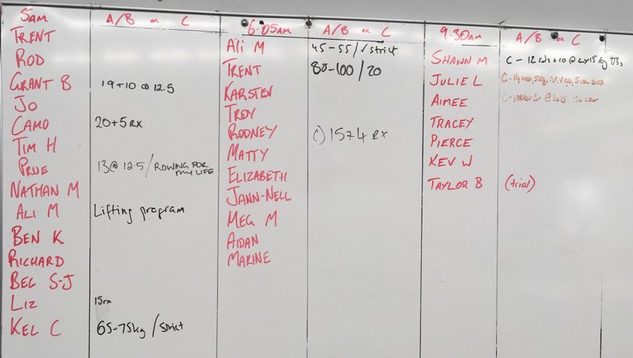 5am A/B or C
TRENT
ROD
GRANT B 19+10 @ 12.5
JO
CAMO 20+5 RX
TIM H
PRUE 13@ 12.5/ROWING FOR MY LIFE
NATHAN M
ALI M Lifting program
BEN K
RICHARD
BEC S-J
LIZ 15rn
KEL C 65-75kg/strict
6:05am A/B or C
ALI M 45-55/strict
TRENT 80-100/20
KARSTEN
TROY
RODNEY C) 15+4 RX
MATTY
ELIZABETH
JANN-NELL
MEG M
AIDAN
MARINE
9.30am A/B or C
SHAWN M C - 12 rds+10@
JULIE L
AIMEE
TRACEY
PIERCE
KEV W
TAYLOR B (trial)